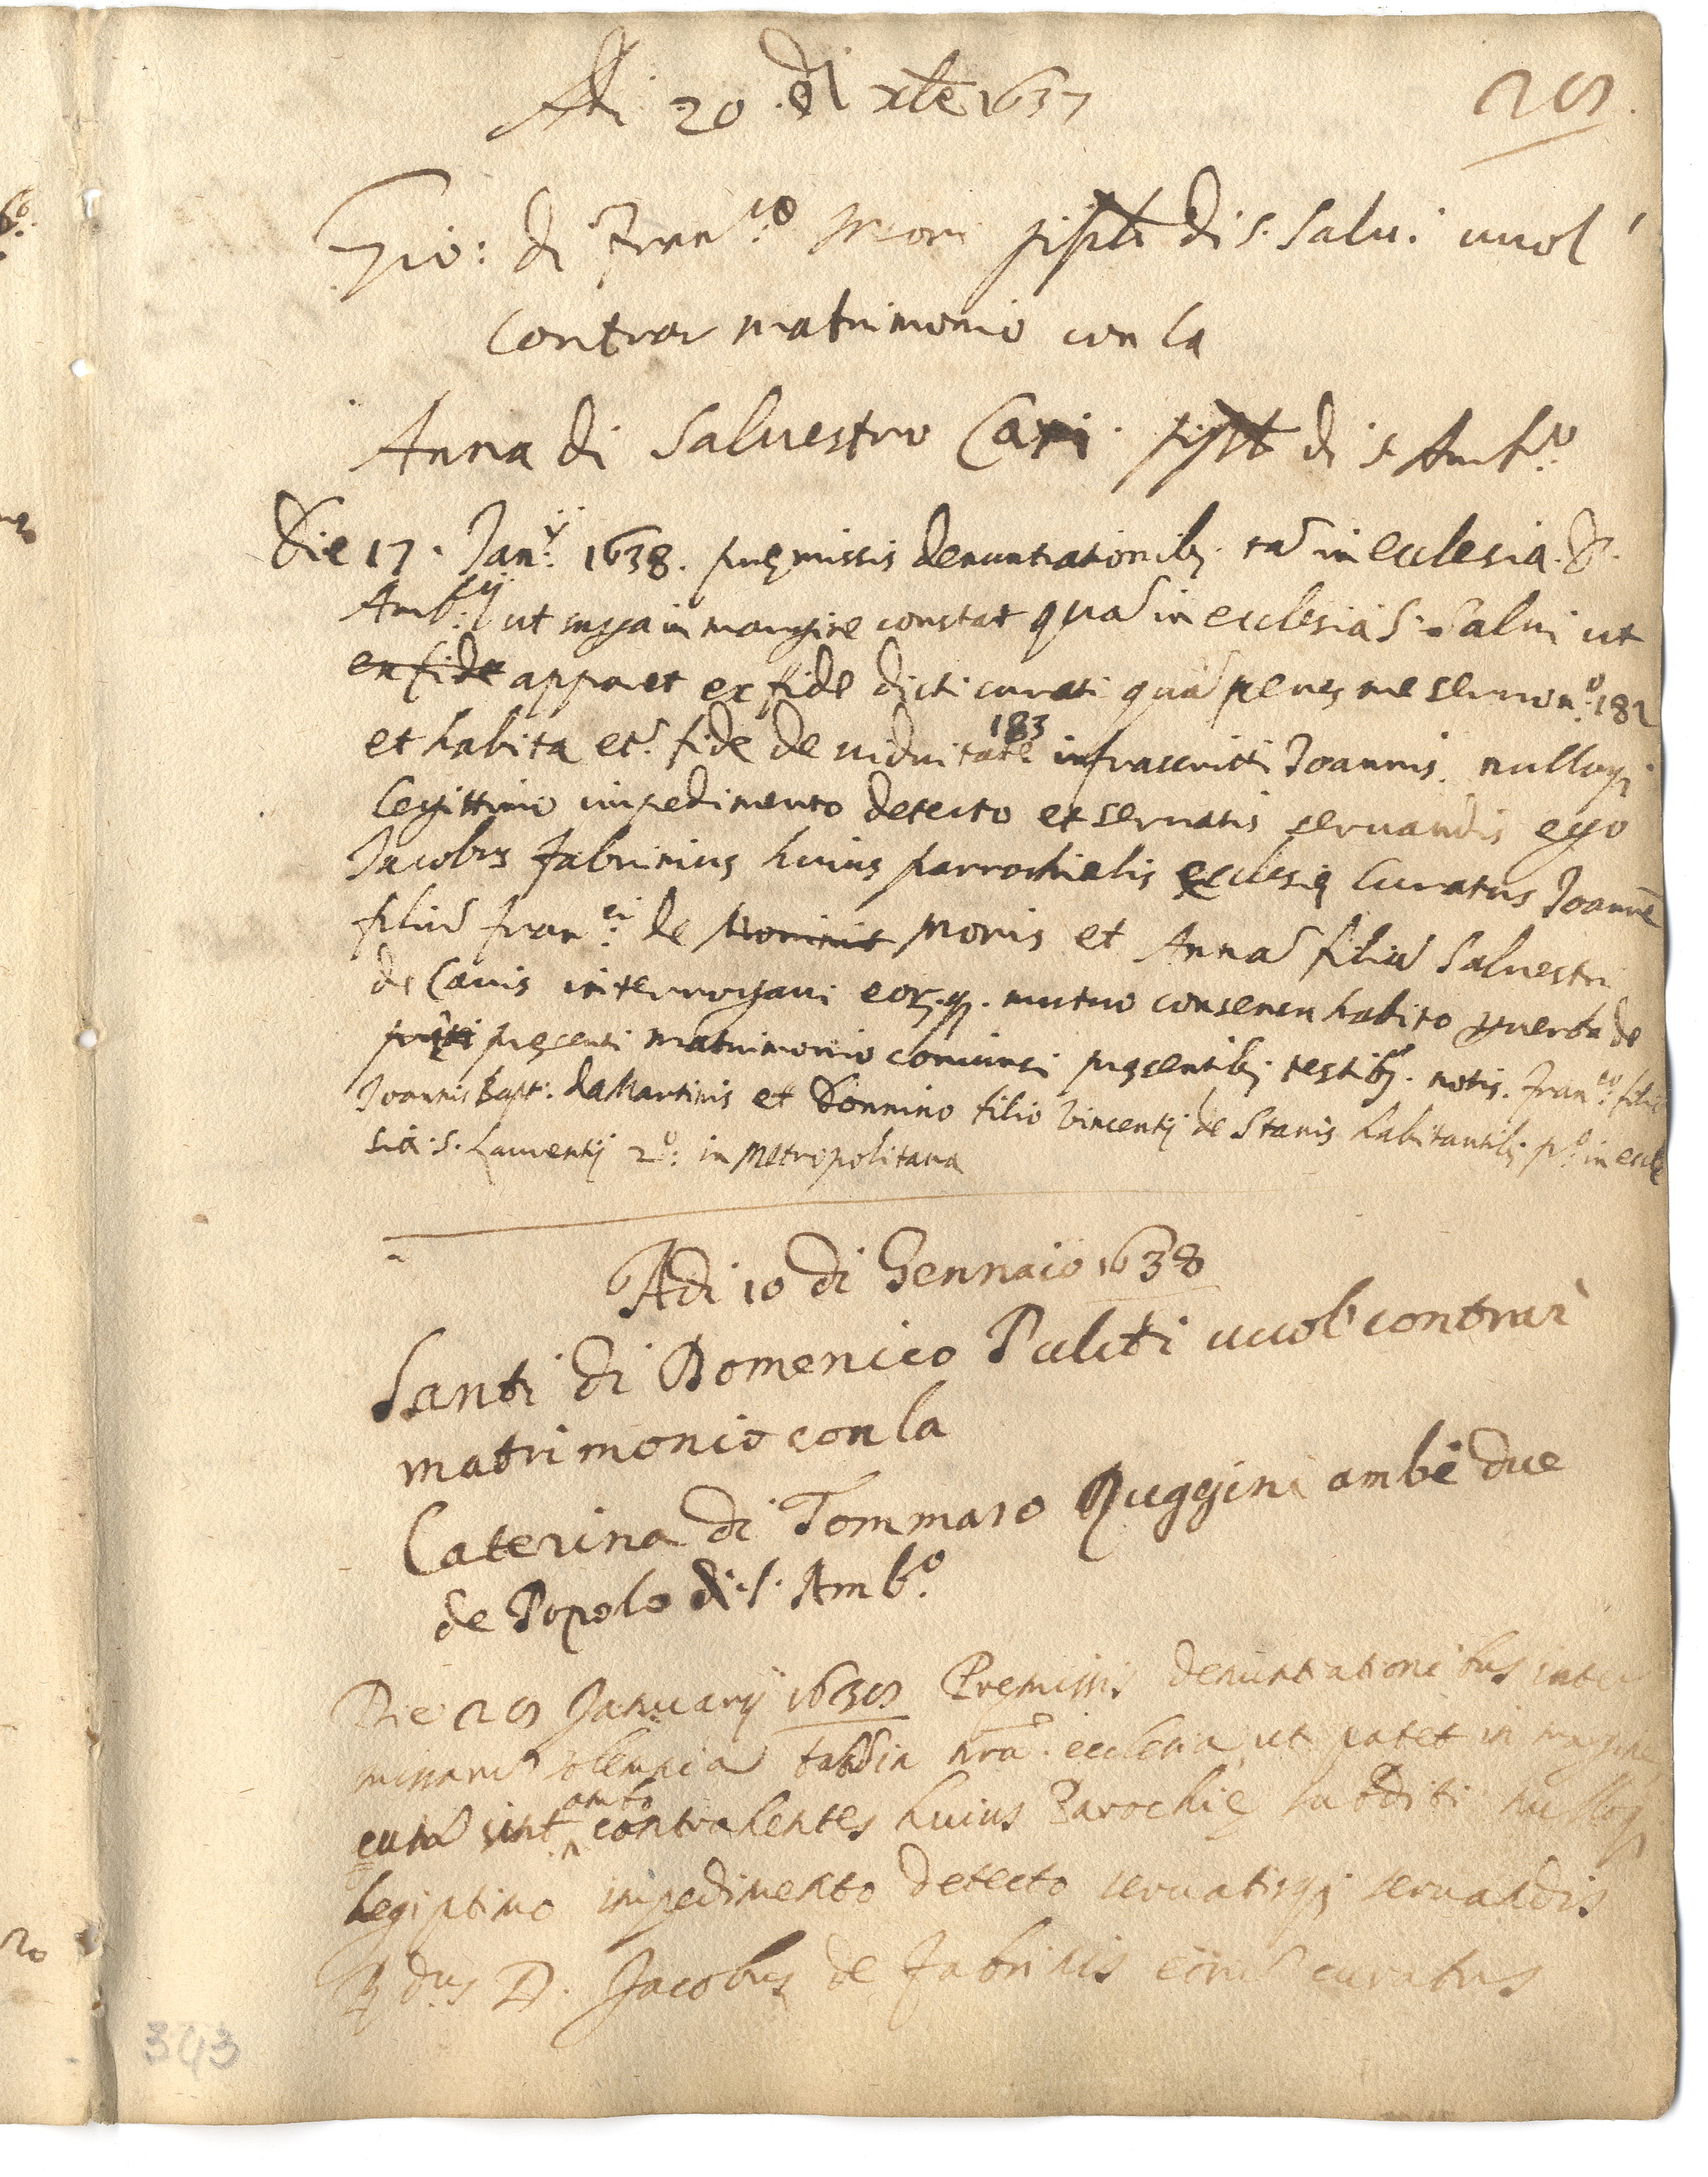 Adi 20 di xbre 1637
28.
Gio: di Fran.co Mori di S. Salvi vuol
Contrar matrimonio con la
Anna di Salvestro Cavi di S. Amb.o
Die 17. Jan.ij 1638. pręmissis denuntiationib. ta͂ in ecclesia. S.
Amb.ij ut supra in margine constat qua͂ in ecclesia S. Salvi ut
ex fide apparet ex fide dicti curati qua͂ penes me servo n.o 182
et habita et. fide de viduitate 183 infrascritti Joannis. nulloq;
legittimo impedimento detecto et servatis servandis ego
Jacobus Fabrinius huius parrochialis ecclesię Curatus Joanne͂
filiu͂ Fran.ci de Morinis Moris et Anna͂ filia͂ Salvestri
de Cavis interrogavi eor.q. mutuo consensu habito p verba de
pręti pręsenti matrimonio coniunsi pręsentib; testib;. notis. Fran.co filio
Joannis Bapt: de Martinis et Donnino filio Vincentij de Stanis habitantib; p.o in eccle
sia. S. Laurentij 2.o: in Metropolitana
Adi 10 di Gennaio 1638
Santi di Domenico Puliti vuol contrar
matrimonio con la
Caterina di Tommaso Ruggini ambe due
de Popolo di. S. Amb.o
Die 28 Januarij 1638 Premissis denuntiationibus inter
missaru͂ solemnia in nra. ecclesia ut patet in margine
cum sint ambo contrahentes huius Parochię subditi nulloq;
legiptimo impedimento detecto servatisq; servandis
D. Jacobus de Fabrinis curatus
343